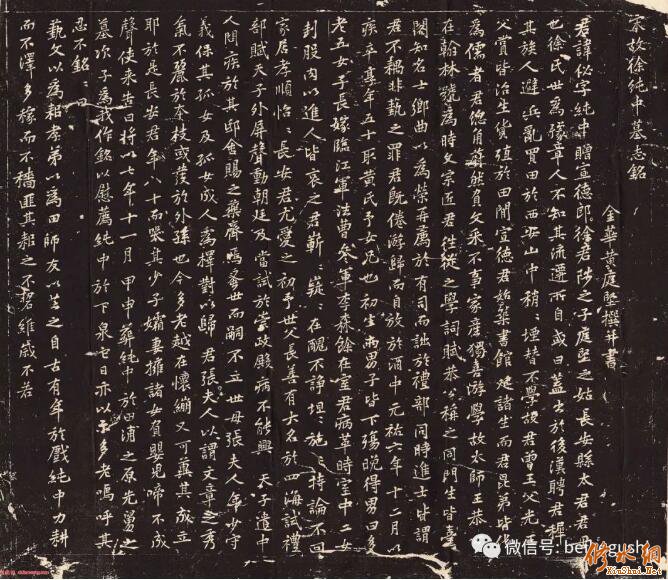 宋故徐純中墓志銘
金華黃庭堅撰并書
君諱佖字純中贈宣德郎徐君陟之子庭堅之姑長安縣太君君
也徐氏世為豫章人不知其流遷所自或曰蓋出於後漢聘君穉
其族人避兵亂買田於西安山中稍稍堙替不學諡君曾王父光
父賞皆治生貲殖於田閒宣德君始築書館延諸生而君昆弟皆
為儒者君倜儻負文采不事家產獨喜游學故太師王恭
在翰林號為時文宗匠君往從之學詞賦恭公稱之同門生皆臺
閣知名士鄉曲以為榮再薦於有司而詘於禮部同時進士皆謂
君不耦非藝之罪君既倦游歸而自放於酒中元祐六年十二月以
疾卒享年五十取黃氏予女兄也初生兩男子皆下殤晚得男曰多
老五女子長嫁臨江軍法曹參軍李森餘在室君病革時室中二女
封股肉以進人皆哀之君嶄嶄在醜不諍坦坦施施持論不回
家居孝順怡怡長安君尤愛之初予世父長善有大名於四海試禮
部賦天子外屏聲動朝廷及當試於崇政殿病不能興天子遣中
人問疾於其邸舍賜之藥齊嗚虖世而嗣不立世母張夫人年少守
義保其孤女及孤女成人為擇對以歸君張夫人以謂文章之秀
氣不麗於本枝或茂於外孫也今多老越在懷繃又可冀其成立
耶於是長安君年八十而哭其少子孀妻擁諸女負嬰兒啼不成
聲使來告曰將以七年十一月甲申葬純中於田浦之原光舅之
墓次子為我作銘以慰薦純中於下泉它日亦以示多老嗚呼其
忍不銘
藝文以為耜孝弟以為田師友以芟之自古有年於戲純中力耕
而不澤多稼而不穡匪其耜之不䂮維歲不若
微信号:
修水網
XiuShui.Net